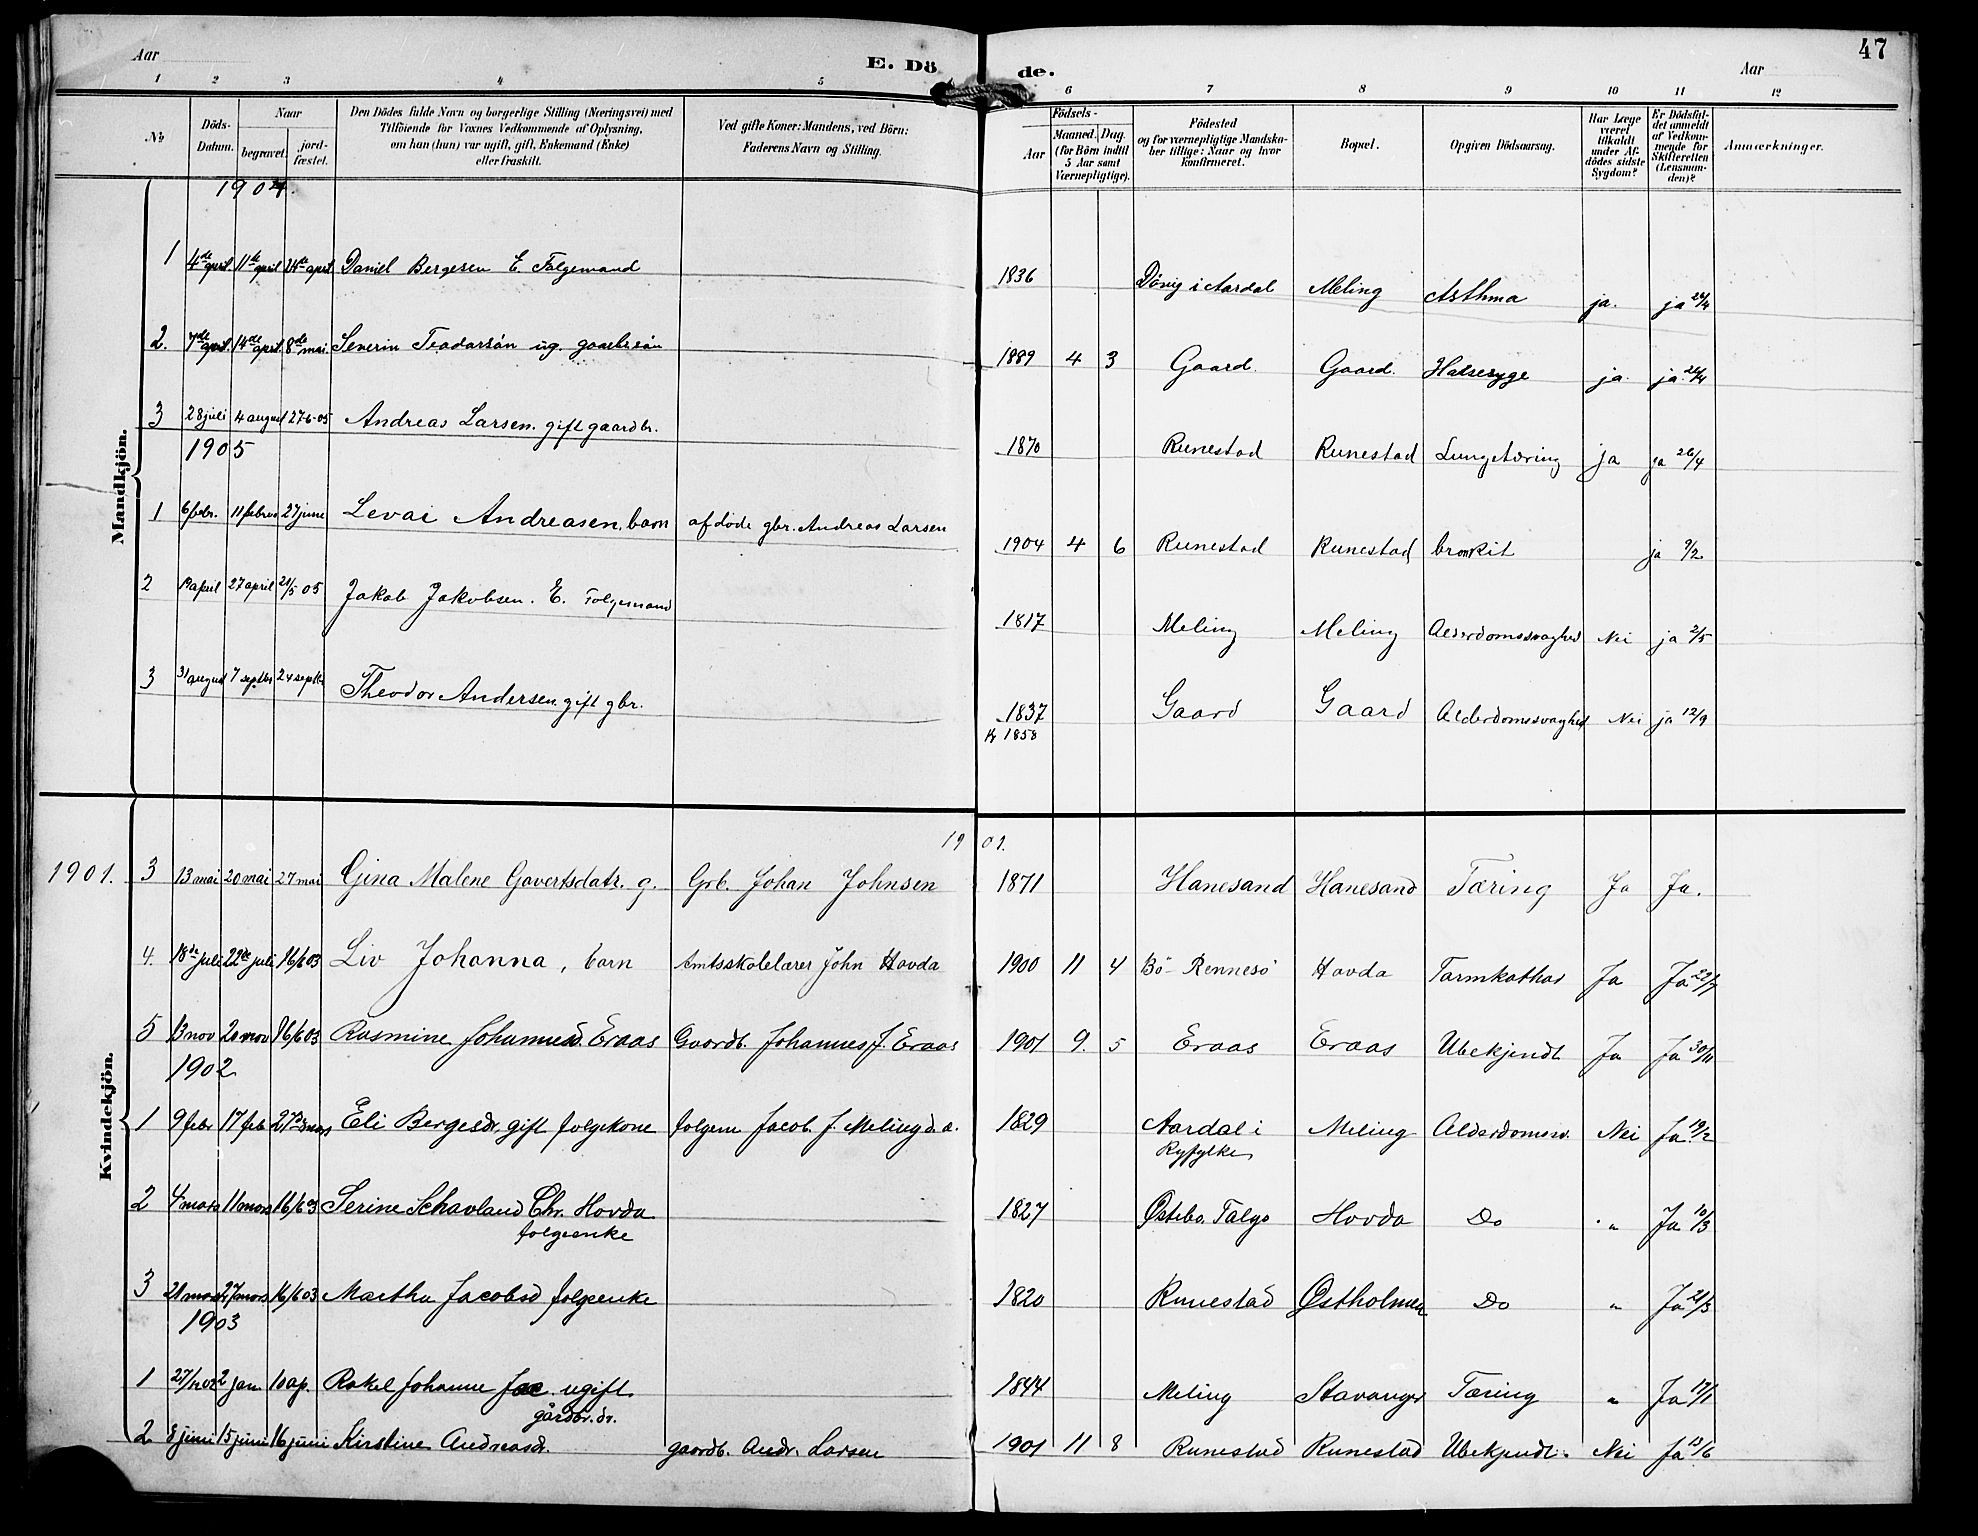 47
Aar
E. Dö
de.
Aar
1 2 3 4 5 6 7 8 9 10 11 12
No. Döds-Datum. Naar begravet. jord-fæstet. Den Dödes fulde Navn og borgerlige Stilling (Næringsvei) med Tilföiende for Voxnes Vedkommende af Oplysning, om han (hun) var ugift, gift, Enkemand (Enke) eller fraskilt. Ved gifte Koner: Mandens, ved Börn: Faderens Navn og Stilling. Födsels- Aar Maaned. Dag. (for Börn indtil 5 Aar samt Værnepligtige). Födested og for værnepligtige Mandska-ber tillige: Naar og hvor konfirmeret. Bopæl. Opgiven Dödsaarsag. Har Læge været tilkaldt under Af-dödes sidste Sygdom? Er Dödsfal-det anmeldt af Vedkom-mende for Skifteretten (Lensman-den)? Anmærkninger.
Mandkjön.
1904.
1 4de april 11te april 24de april Daniel Bergesen E. Folgemand 1836 Dövig i Aardal Meling Asthma ja. ja 24/4
2. 7de april 14de april 8de mai. Severin Teodorsön ug. gaardbr.sön 1889 4 3 Gaard. Gaard. Halsesyge ja. ja. 24/4
3 28 juli 4 august 27-6-05 Andreas Larsen. gift gaardbr. 1870 Runestad Runestad Lungetæring ja ja 26/4
1905
1 6 febr. 11 februar 27 june Levai Andreasen, barn afdöde gbr. Andreas Larsen 1904 4 6 Runestad Runestad bronkit ja 9/2
2 19 april 27 april 21/5 05 Jakob Jakobsen. E. Folgemand 1817 Meling Meling Alderdomssvaghed Nei ja 2/5
3 31 august 7 septbr 24 septbr Theodor Andersen. gift gbr. 1837 Gaard Gaard Alderdomssvaghed Nei ja 12/9
1858
Kvindekjön.
1901.
1901. 3 13 mai 20 mai 27 mai Gina Malene Govertsdatr. g. Grb. Johan Johnsen 1871 Hanesand Hanesand Tæring Ja Ja.
4. 18de juli 22de juli 16/6 03 Liv Johanna, barn Amtsskolelærer John Hovda 1900 11 4 Bö- Rennesö Hovda Tarmkathar Ja Ja 22/7
5 13 nov 20 nov 16/6 03 Rasmine Johannesd. Eraas Gaardb. Johannes J. Eraas 1901 9. 5 Eraas Eraas Ubekjendt Ja Ja 30/11
1902
1 9 febr 17 feb 27de mars Eli Bergesdr gift folgekone folgem Jacob J. Meling d. æ. 1829 Aardal i Meling Alderdomssv. Nei Ja 19/2
Ryfylke
2 4 mars 11 mars 16/6 03 Serine Schavland Chr. Hovda 1827 Østebö. Talgö Hovda Do „ Ja 10/3
folgeenke
3 27 mars 16/6 03 Martha Jacobsd folgeenke 1820 Runestad Østholmen Do „ Ja 21/3
1903
1 27/12 02 2 jan. 10 ap. Rakel Johanne Jac ugift 1844 Meling Stavanger Tæring „ Ja
gårdbr. dr.
2 8 juni 15 juni 16 juni Kirstine Andreasdr. gaardb. Andr. Larsen 1901 11 8 Runestad Runestad Ubekjendt. Nei Ja 13/6